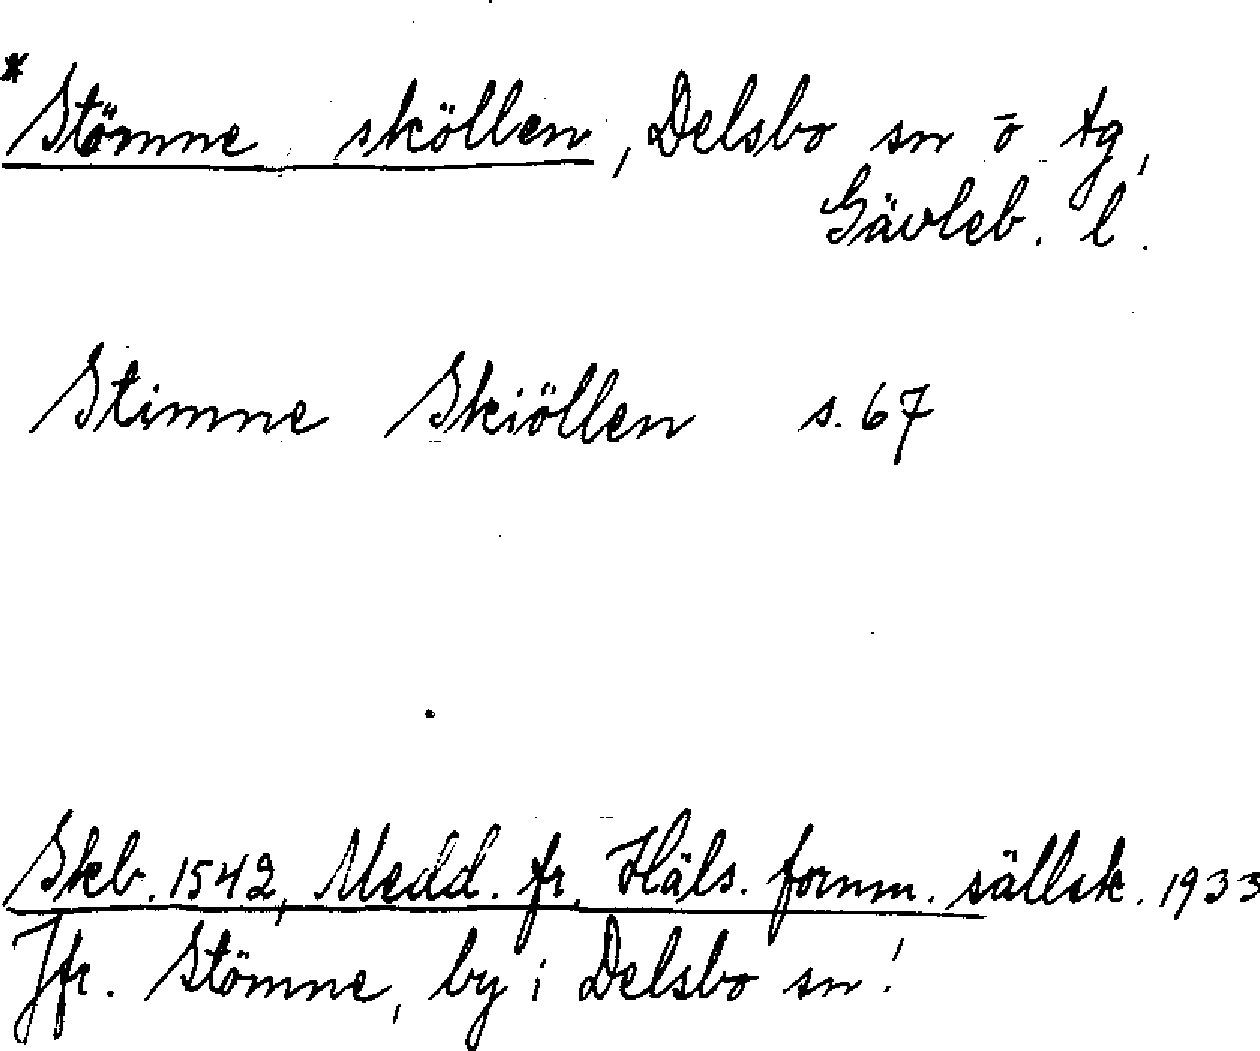 * Stömne sköllen, Delsbo sn o tg,
Gävleb. l.
Stimne Skiöllen s. 67
Skb. 1542, Medd. fr. Häls. fornm. sällsk. 1933
Jfr. Stömne, by i Delsbo sn!